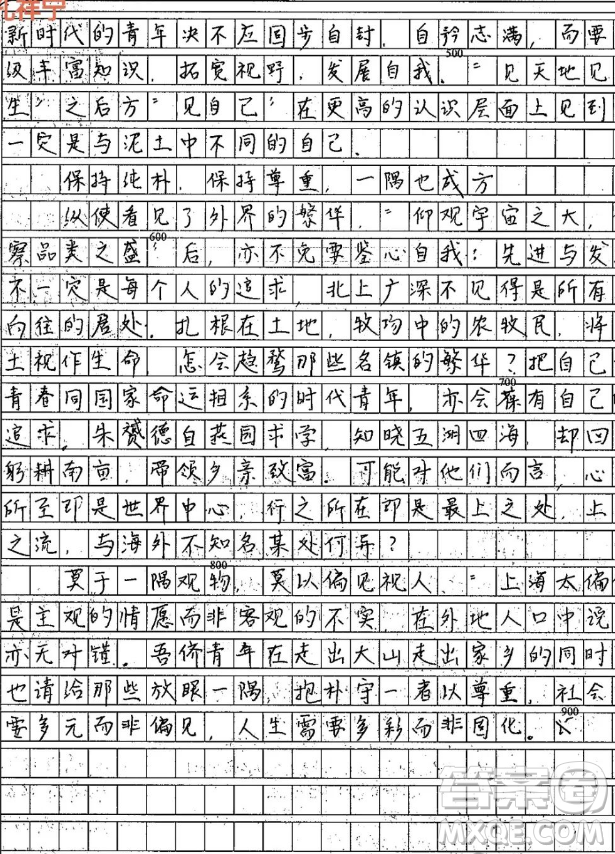 新时代的青年决不应固步自封，自矜志满，而要
级丰富知识，拓宽视野，发展自我。“见天地见
500
生”之后方“见自己”在更高的认识层面上见到
一定是与泥土中不同的自己。
保持纯朴，保持尊重，一隅也成方
纵使看见了外界的繁华，“仰观宇宙之大，
察品类之盛”后，亦不免要鉴心自我：先进与发
600
不一定是每个人的追求，北上广深不见得是所有
向往的居处。扎根在土地，牧场中的农牧民，将
土视作生命，怎会趋鹜那些名镇的繁华？把自己
青春同国家命运相系的时代青年，亦会葆有自己
700
追求。朱赟德自燕园求学，知晓五洲四海，却回
躬耕南亩，带领乡亲致富。可能对他们而言，心
所至即是世界中心，行之所在即是最上之处，上
之流，与海外不知名某处何异？
莫于一隅观物，莫以偏见视人。“上海太偏
800
是主观的情愿而非客观的不实，在外地人口中说
亦无对错。吾侪青年在走出大山走出家乡的同时
也请给那些放眼一隅，抱朴守一者以尊重，社会
要多元而非偏见，人生需要多彩而非固化。
900
答案圈
MXQE.COM